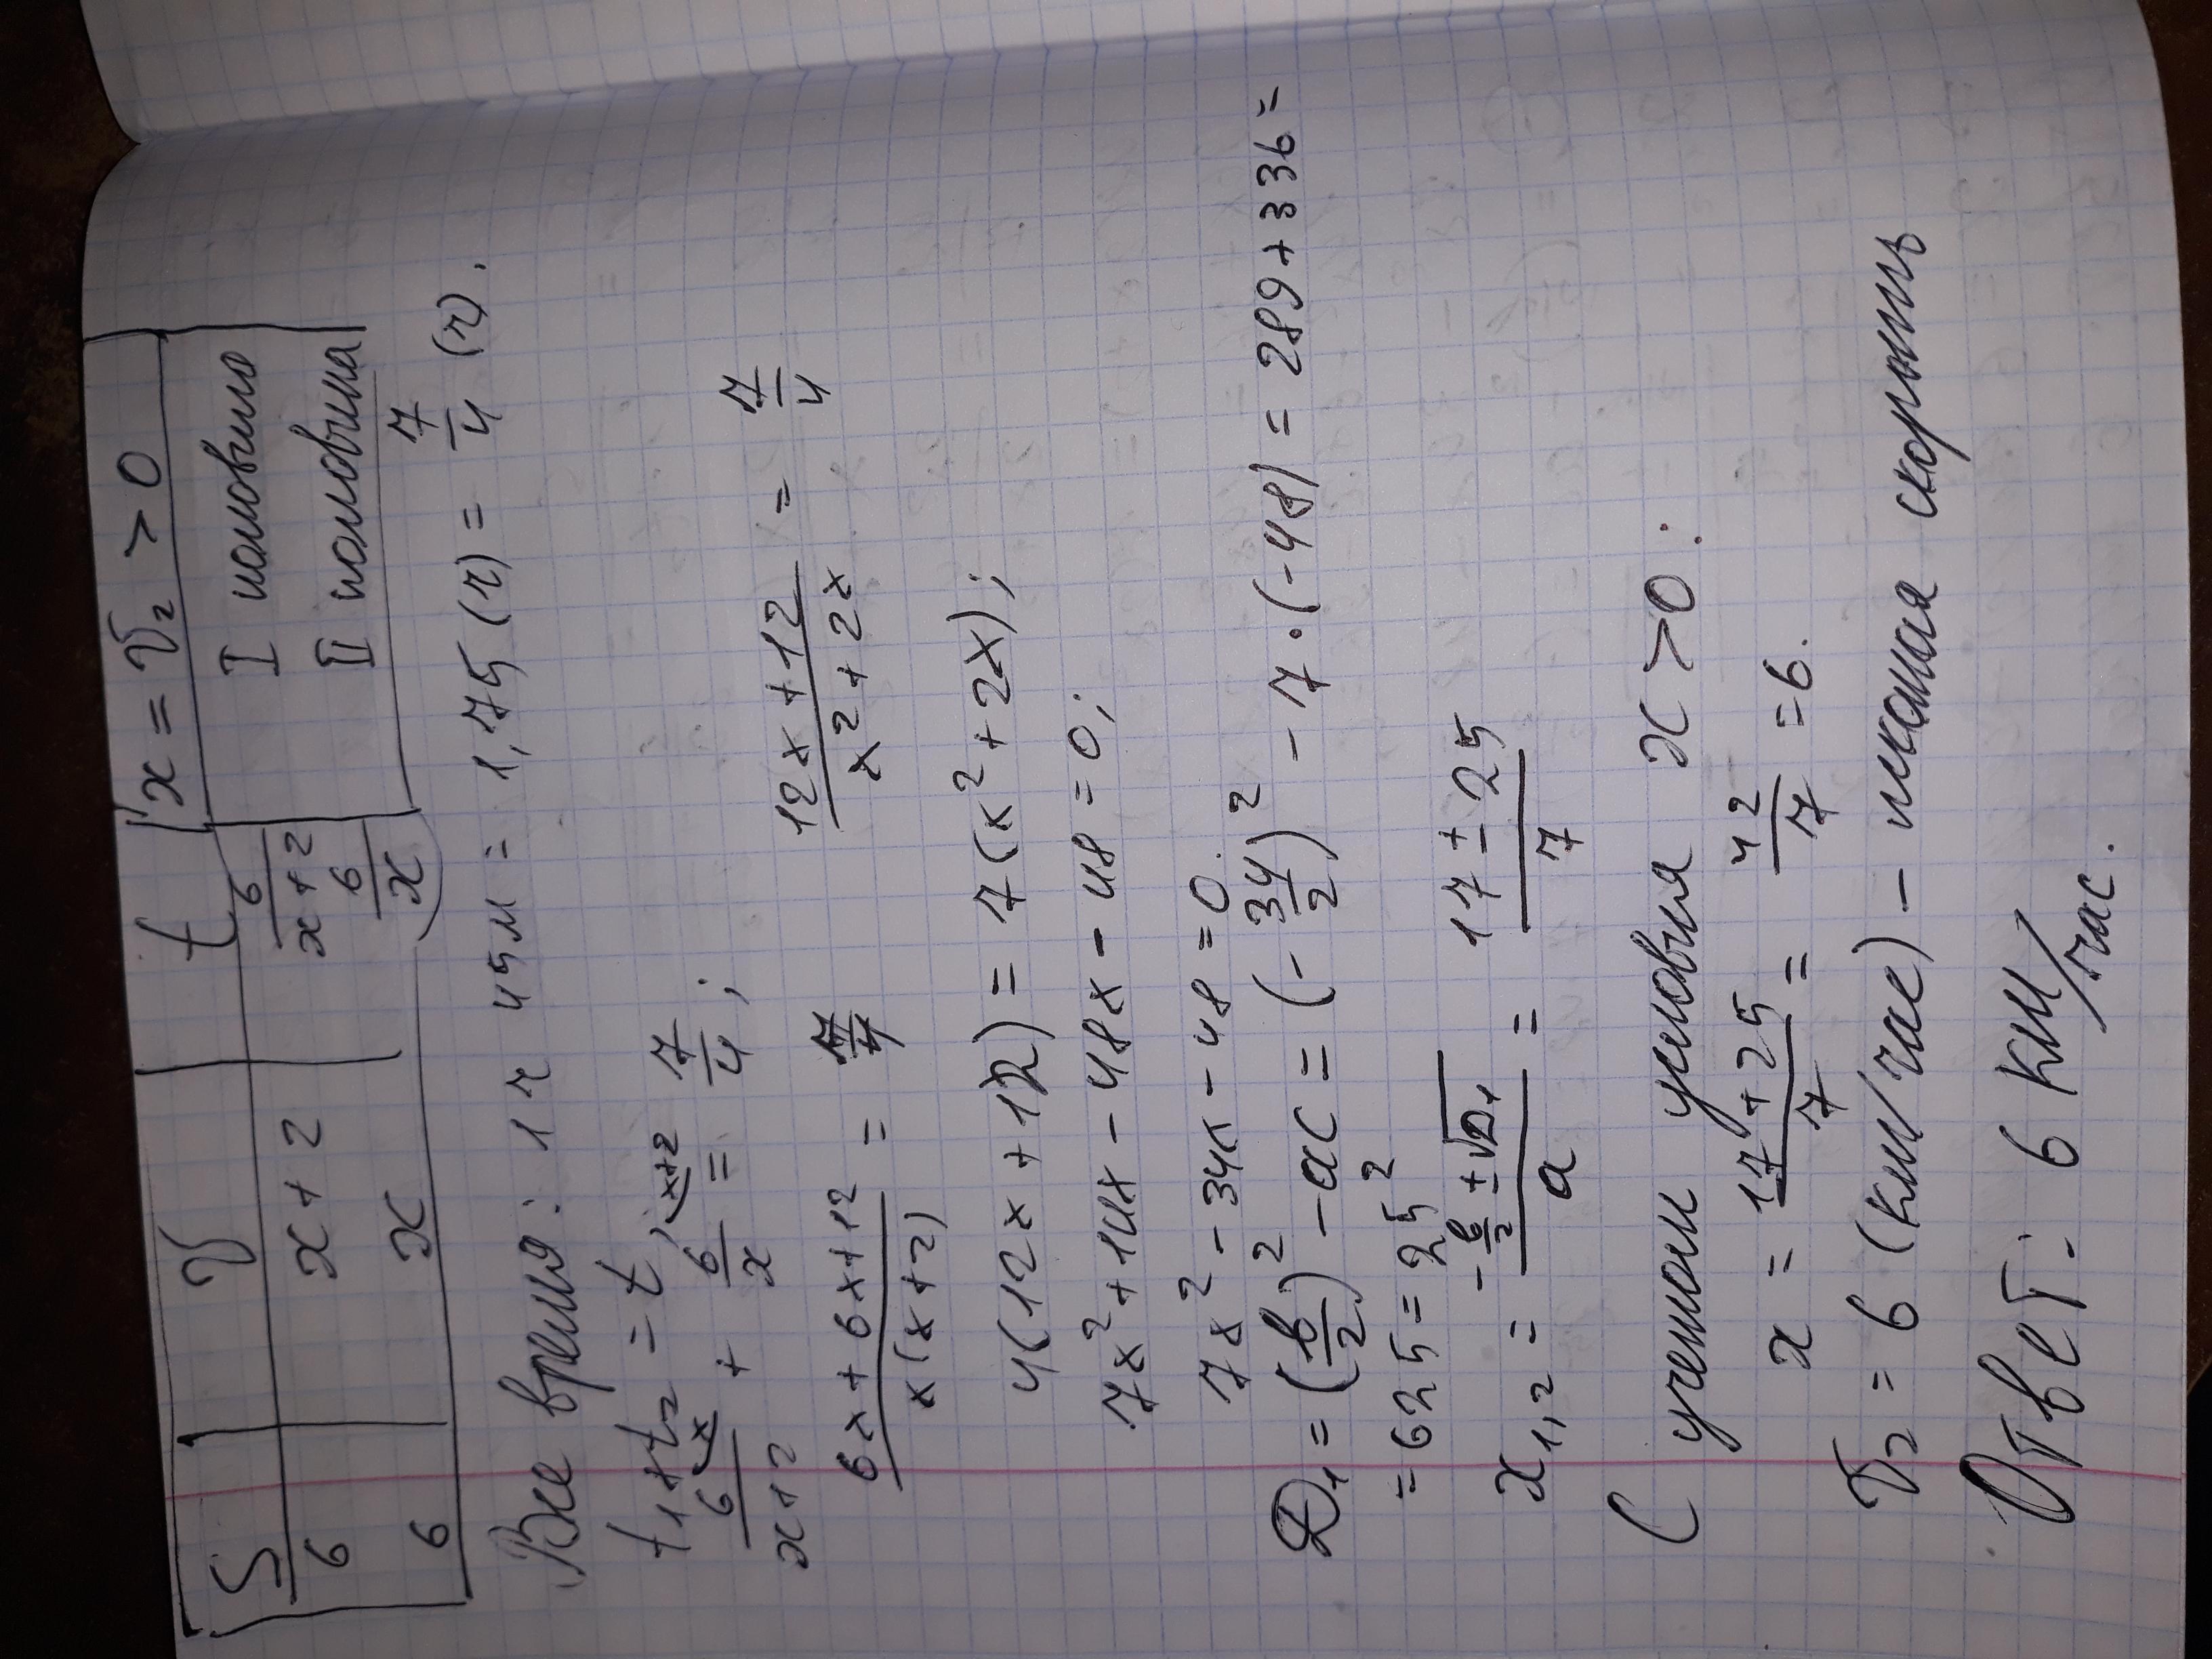 S | V | t | x = V₂ > 0
6 | x+2 | 6/(x+2) | I половина
6 | x | 6/x | II половина
Все время: 1ч 45м = 1,75(ч) = 7/4 (ч).
t₁+t₂ = t;
6/(x+2) + 6/x = 7/4;
(6x+6x+12)/(x(x+2)) = 7/4 (12x+12)/(x²+2x) = 7/4
4(12x+12) = 7(x²+2x);
7x²+14x-48x-48=0;
7x²-34x-48=0.
D₁=(b/2)²-ac=(-34/2)²-7·(-48)=289+336=
=625=25²
x₁,₂ = (-b/2±√D₁)/a = (17±25)/7
С учетом условия x>0:
x = (17+25)/7 = 42/7 =6.
V₂=6 (км/час) - искомая скорость
Ответ: 6 км/час.